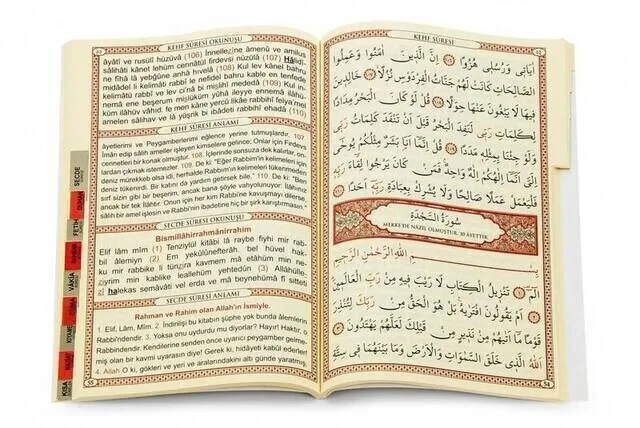 KEHF SÛRESİ OKUNUŞU
âyâtî ve rusulî hüzüvâ (106) İnnellezine âmenû ve amilus
sâlihâti kânet lehüm cennâtül firdevsi nüzülâ (107) Hâlidî-
ne fîhâ lâ yebğûne anhâ hıvelâ (108) Kul lev kânel bahru
midâdel li kelimâti rabbî le nefidel bahru kable en tenfede
kelimâtü rabbî ve lev ci'nâ bi mislihî mededâ (109) Kul in-
nemâ ene beşerum mislüküm yûhâ ileyye ennemâ ilâhü-
küm ilâhüv vâhid, fe men kâne yercû likâe rabbihî felya'mel
amelen sâlihav ve lâ yüşrik bi ibâdeti rabbihî ehadâ (110)
KEHF SÛRESİ ANLAMI
âyetlerimi ve Peygamberlerimi eğlence yerine tutmuşlardır. 107
İman edip salih ameller işleyen kimselere gelince: Onlar için Firdevs
cennetleri bir konak olmuştur. 108. İçlerinde sonsuza dek kalırlar, on-
lardan çıkmak istemezler. 109. De ki: "Eğer Rabbin'in kelimeleri için
deniz mürekkeb olsa idi, herhalde Rabbin'in kelimeleri tükenmeden
deniz tükenirdi. Bir katını da yardım getirsek bile." 110. De ki: "Ben
ancak bir tek ilâhtır. Onun için her kim Rabbi'ne kavuşmayı ümid ederse,
SECDE SÛRESİ OKUNUŞU
Bismillâhirrahmânirrahîm
Elif lâm mîm (1) Tenzîylül kitâbi lâ raybe fîyhi mir rab-
bil âlemiyn (2) Em yekûlûnefterâh, bel hüvel hak-
ku mir rabbike li tünzira kavmem mâ etâhüm min ne-
ziyrim min kablike leallehüm yehtedûn (3) Allâhülle-
zî halekas semâvâti vel erda ve mâ beynehümâ fî sitteti
SECDE SÛRESİ ANLAMI
Rahman ve Rahim olan Allah'ın İsmiyle.
1. Elif, Lâm, Mîm. 2. İndirilişi bu kitabın şüphe yok bunda âlemlerin
Rabbi'ndendir. 3. Yoksa onu uydurdu mu diyorlar? Hayır! Haktır, o
Rabbindendir. Kendilerine senden önce uyarıcı peygamber gelme-
miş olan bir kavmi uyarasın diye! Gerek ki, hidâyeti kabûl ederler!
4. Allah O ki, gökleri ve yeri ve aralarındakini altı günde yaratmış,
55
SECDE
DUHAN
FETİH
VÂKIA
CUMA
KIYAME
KISA
KEHF SÛRESİ
اٰيَاتٖي وَرُسُلٖي هُزُوًا ﴿١٠٦﴾ اِنَّ الَّذٖينَ اٰمَنُوا وَعَمِلُوا
الصَّالِحَاتِ كَانَتْ لَهُمْ جَنَّاتُ الْفِرْدَوْسِ نُزُلًا ﴿١٠٧﴾ خَالِدٖينَ
فٖيهَا لَا يَبْغُونَ عَنْهَا حِوَلًا ﴿١٠٨﴾ قُلْ لَوْ كَانَ الْبَحْرُ مِدَادًا
لِكَلِمَاتِ رَبّٖي لَنَفِدَ الْبَحْرُ قَبْلَ اَنْ تَنْفَدَ كَلِمَاتُ رَبّٖي
وَلَوْ جِئْنَا بِمِثْلِهٖ مَدَدًا ﴿١٠٩﴾ قُلْ اِنَّمَا اَنَا بَشَرٌ مِثْلُكُمْ يُوحٰى
اِلَيَّ اَنَّمَا اِلٰهُكُمْ اِلٰهٌ وَاحِدٌ فَمَنْ كَانَ يَرْجُوا لِقَاءَ رَبِّهٖ
فَلْيَعْمَلْ عَمَلًا صَالِحًا وَلَا يُشْرِكْ بِعِبَادَةِ رَبِّهٖ اَحَدًا ﴿١١٠﴾
سُورَةُ السَّجْدَةِ
MEKKE'DE NAZİL OLMUŞTUR. 30 ÂYETTİR.
بِسْمِ اللّٰهِ الرَّحْمٰنِ الرَّحٖيمِ
الٓمٓ ﴿١﴾ تَنْزٖيلُ الْكِتَابِ لَا رَيْبَ فٖيهِ مِنْ رَبِّ الْعَالَمٖينَ
﴿٢﴾ اَمْ يَقُولُونَ افْتَرٰيهُ بَلْ هُوَ الْحَقُّ مِنْ رَبِّكَ لِتُنْذِرَ
قَوْمًا مَا اَتٰيهُمْ مِنْ نَذٖيرٍ مِنْ قَبْلِكَ لَعَلَّهُمْ يَهْتَدُونَ ﴿٣﴾
اَللّٰهُ الَّذٖي خَلَقَ السَّمٰوَاتِ وَالْاَرْضَ وَمَا بَيْنَهُمَا فٖي سِتَّةِ
54